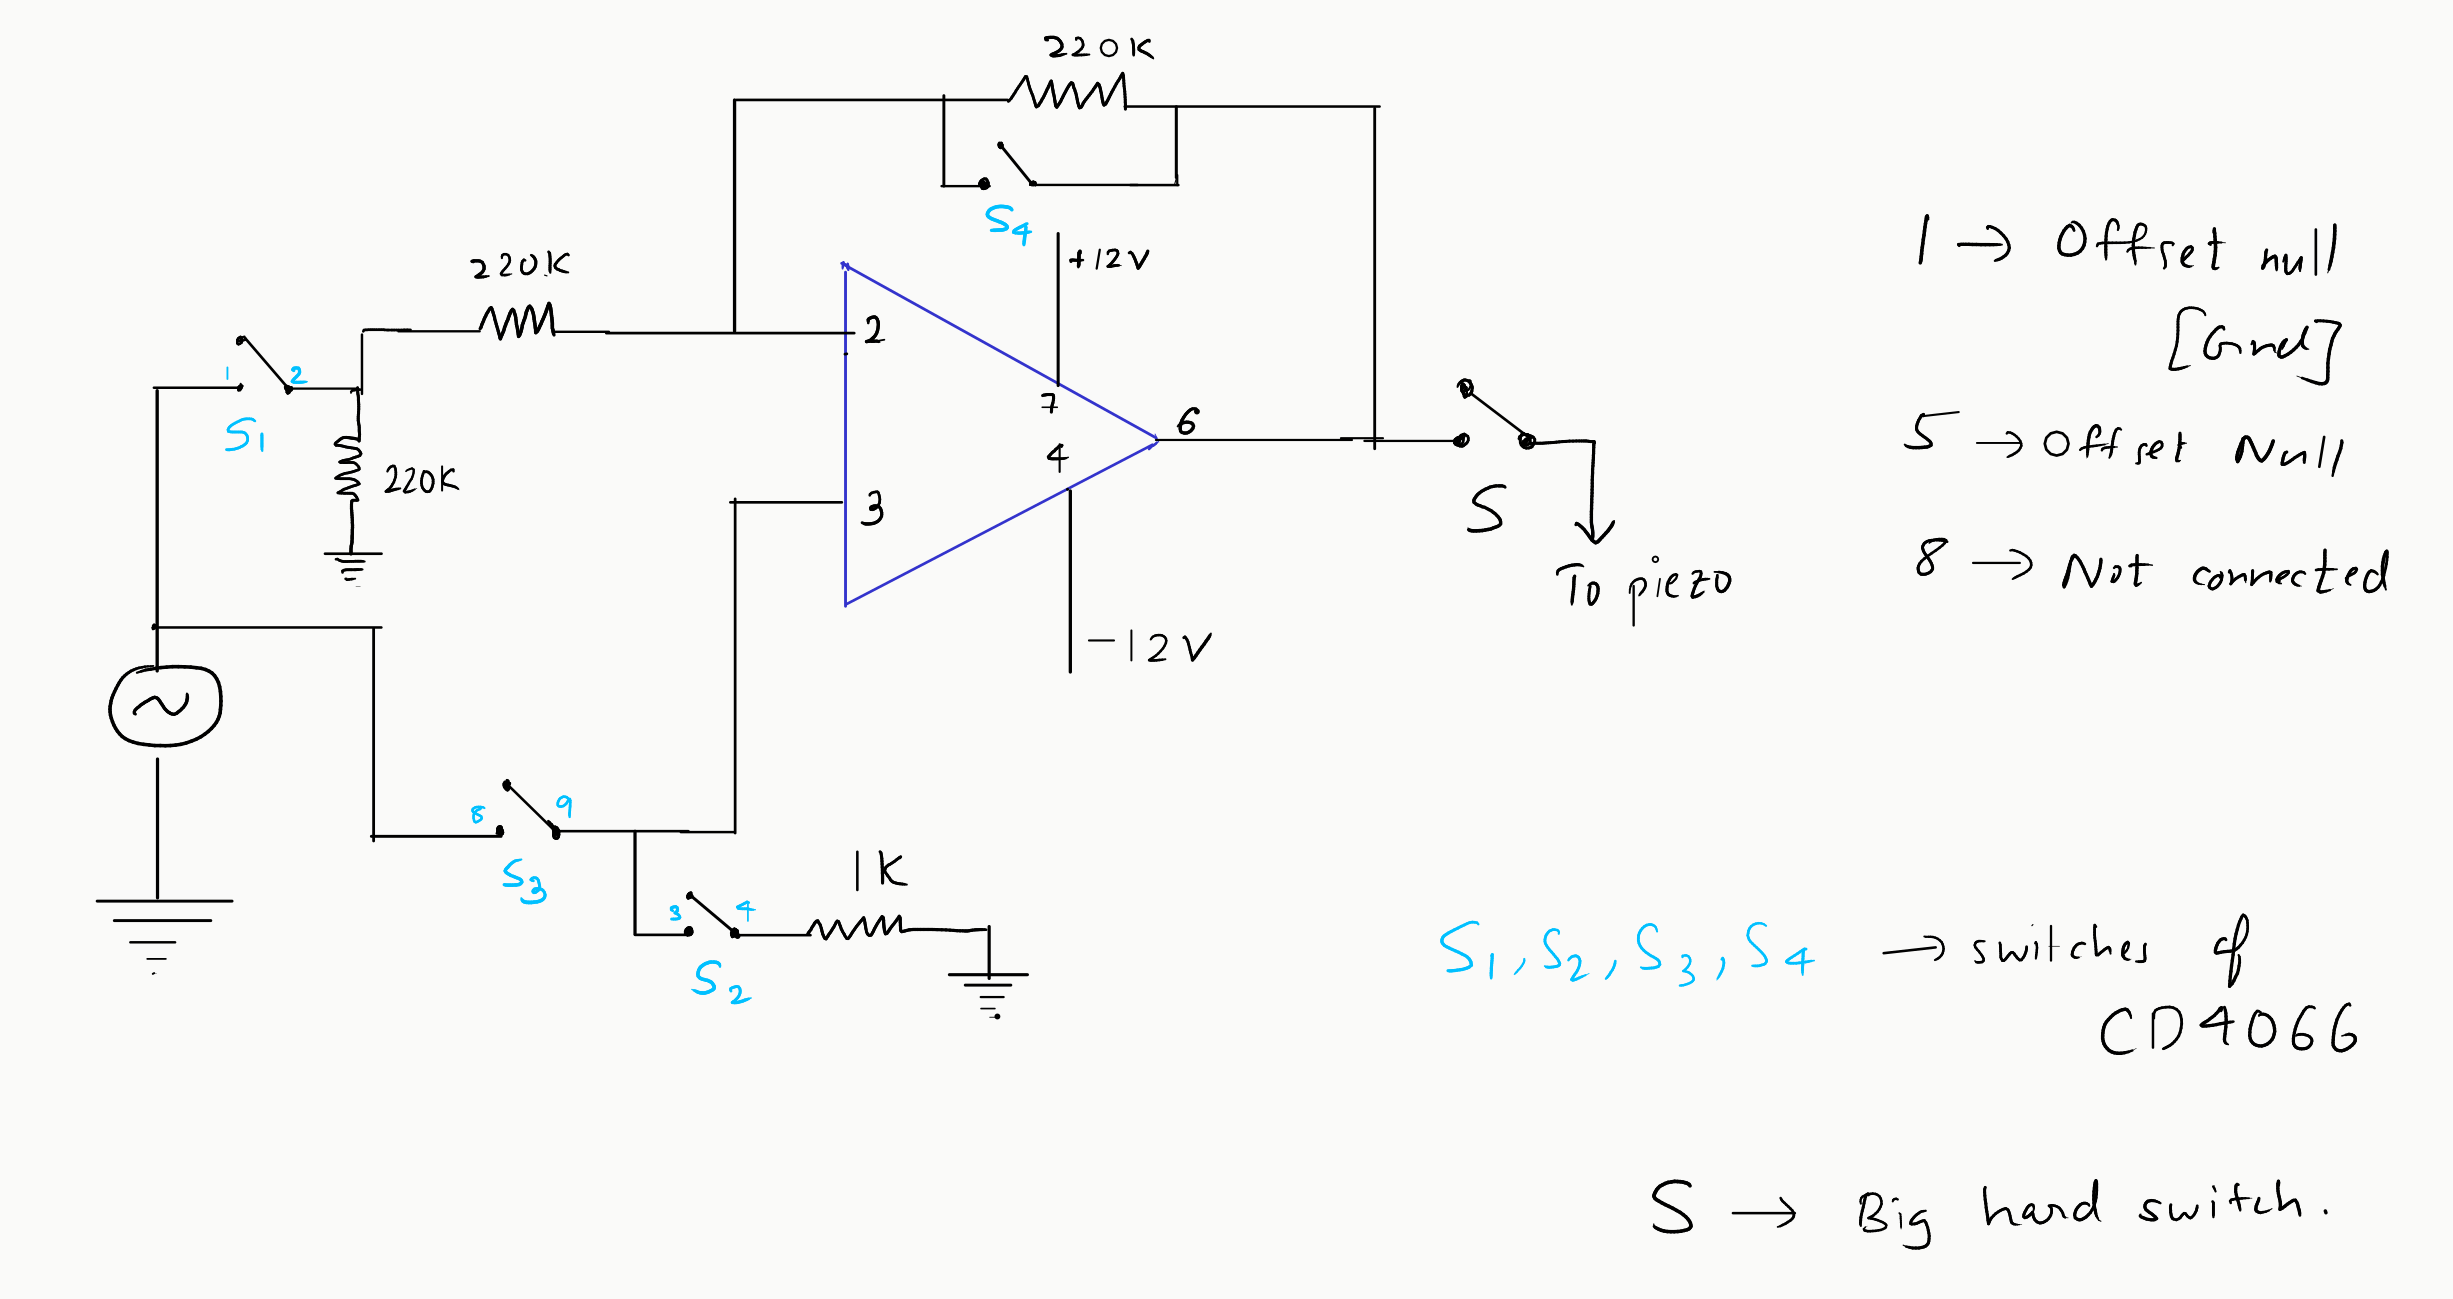 220K
S4
+12V
220K
2
1 2
S1
220K
7
4
6
3
S
To piezo
-12V
~
8 9
S3
1K
3 4
S2
1 → Offset null
[Gnd]
5 → Offset Null
8 → Not connected
S1, S2, S3, S4 → switches of
CD4066
S → Big hard switch.